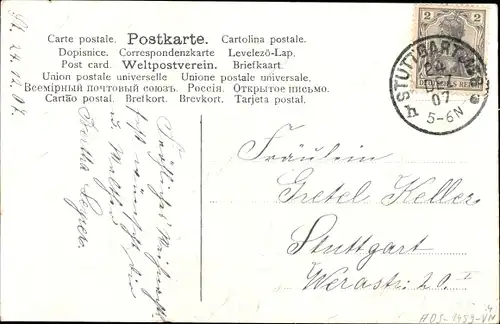 Carte postale. Postkarte. Cartolina postale.
Dopisnice. Correspondenzkarte Levelező-Lap.
Post card. Weltpostverein. Briefkaart.
Union postale universelle Unione postale universale.
Всемірный почтовый союзъ. Россія. Открытое письмо.
Cartão postal. Brefkort. Brevkort. Tarjeta postal.
St. 24.12.07.
Fröhliches
wünscht Dir
Bertha
2
DEUTSCHES REICH
STUTTGART
24
DEZ
07
5-6N
Fräulein
Gretel Keller
Stuttgart
Werastr. 20. I